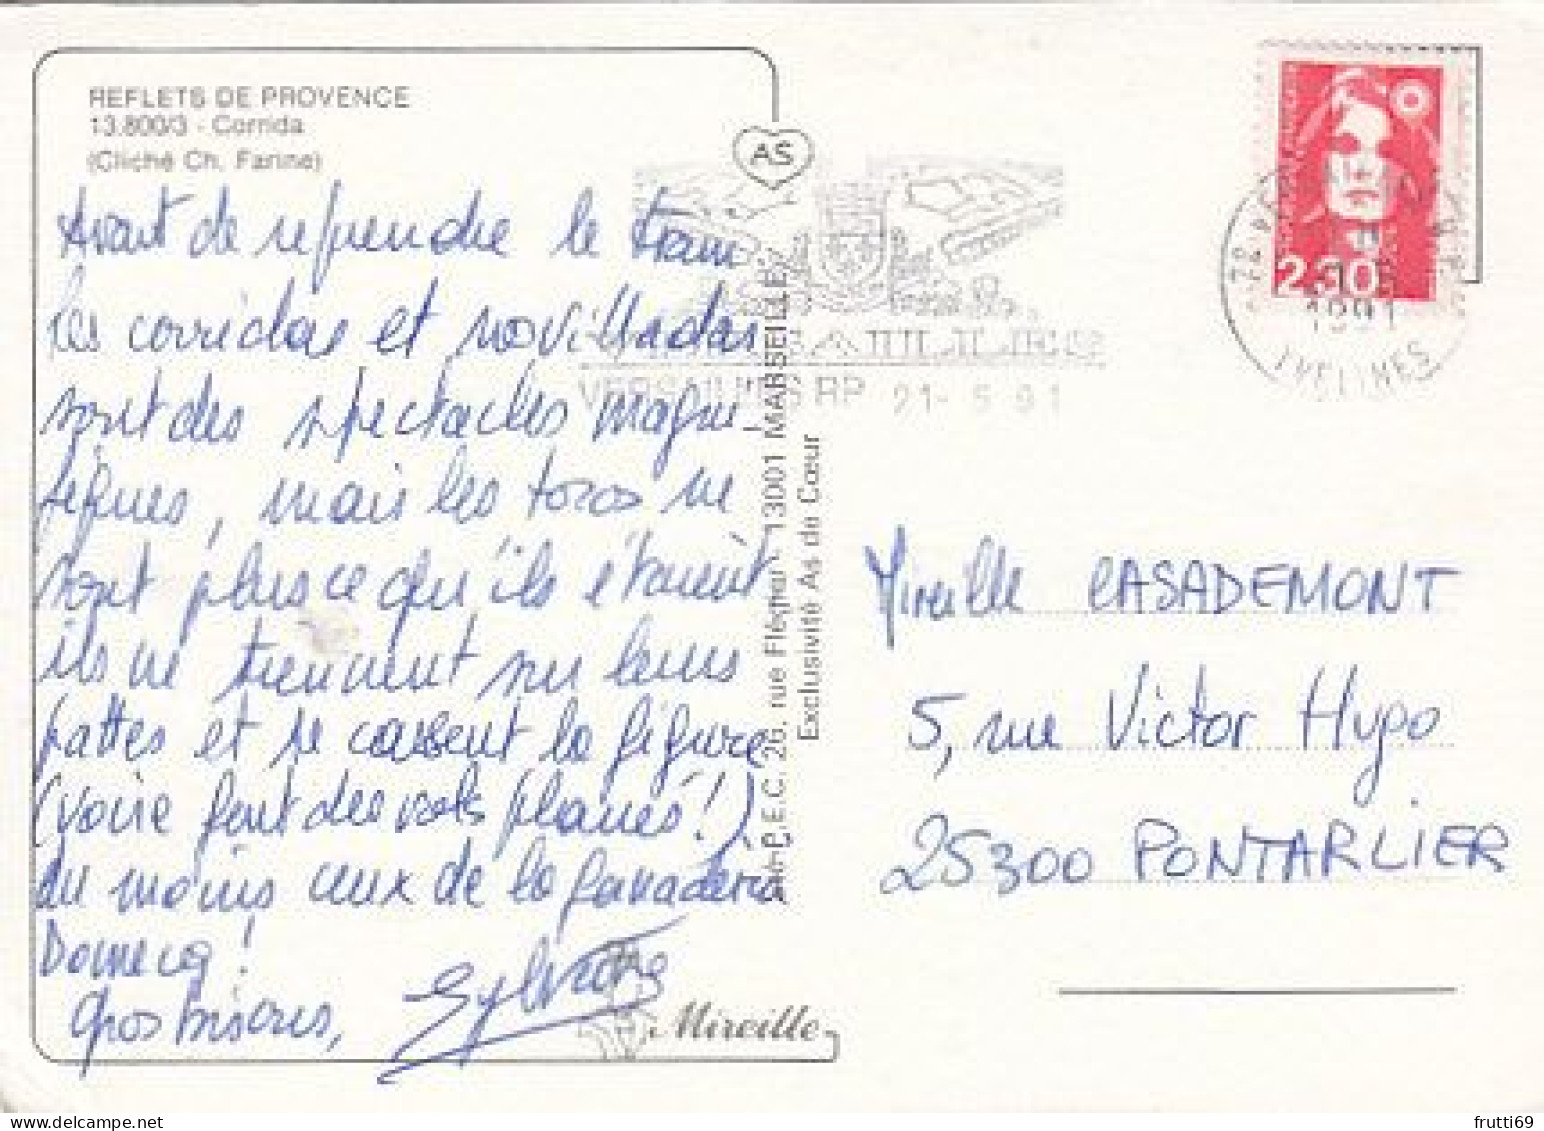 REFLETS DE PROVENCE
13.800/3 - Corrida
(Cliché Ch. Farine)
Avant de reprendre le train
les corridas et novilladas
sont des spectacles magni-
fiques, mais les toros ne
sont plus ce qu'ils étaient
ils ne tiennent sur leurs
pattes et se cassent la figure
(voire font des vols planés!)
du moins ceux de la ganaderia
Domecq!
Gros bisous,
Sylvaine
Mireille
AS
E.C. 26, rue Flégier 13001 MARSEILLE
Exclusivité As de Cœur
VERSAILLES
VERSAILLES RP 21-5 91
2.30
1991
YVELINES
Mireille CASADEMONT
5, rue Victor Hugo
25300 PONTARLIER
frutti69